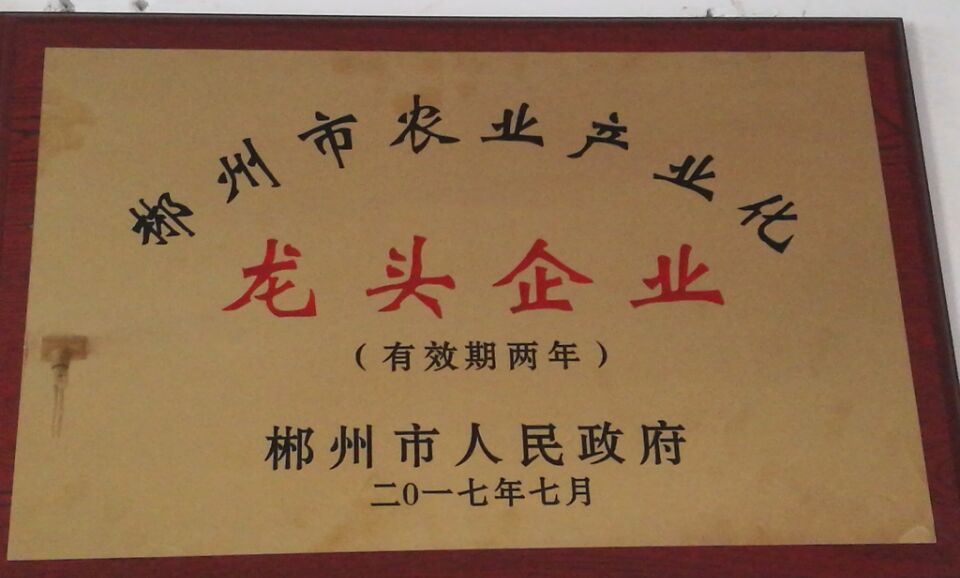 郴州市农业产业化
龙头企业
（有效期两年）
郴州市人民政府
二0一七年七月